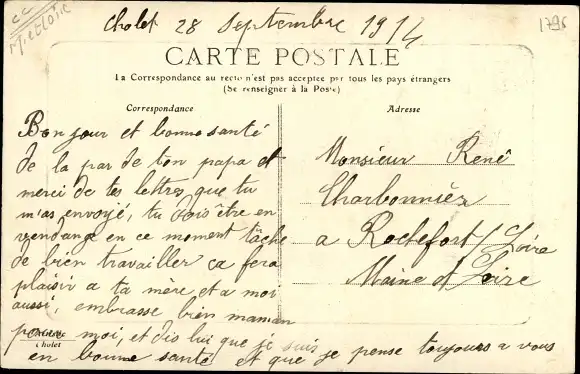 cc
M et Loire
Cholet 28 Septembre 1914
1796
CARTE POSTALE
La Correspondance au recto n'est pas acceptée par tous les pays étrangers
(Se renseigner à la Poste)
Correspondance
Bonjour et bonne santé
de la par de ton papa et
merci de tes lettres que tu
m'as envoyé, tu dois être en
vendange en ce moment tâche
de bien travailler ça fera
plaisir a ta mère et a moi
aussi, embrasse bien maman
pour moi, et dis lui que je suis
en bonne santé et que je pense toujours a vous
Cholet
Adresse
Monsieur René
Charbonnier
a Rochefort/Loire
Maine et Loire